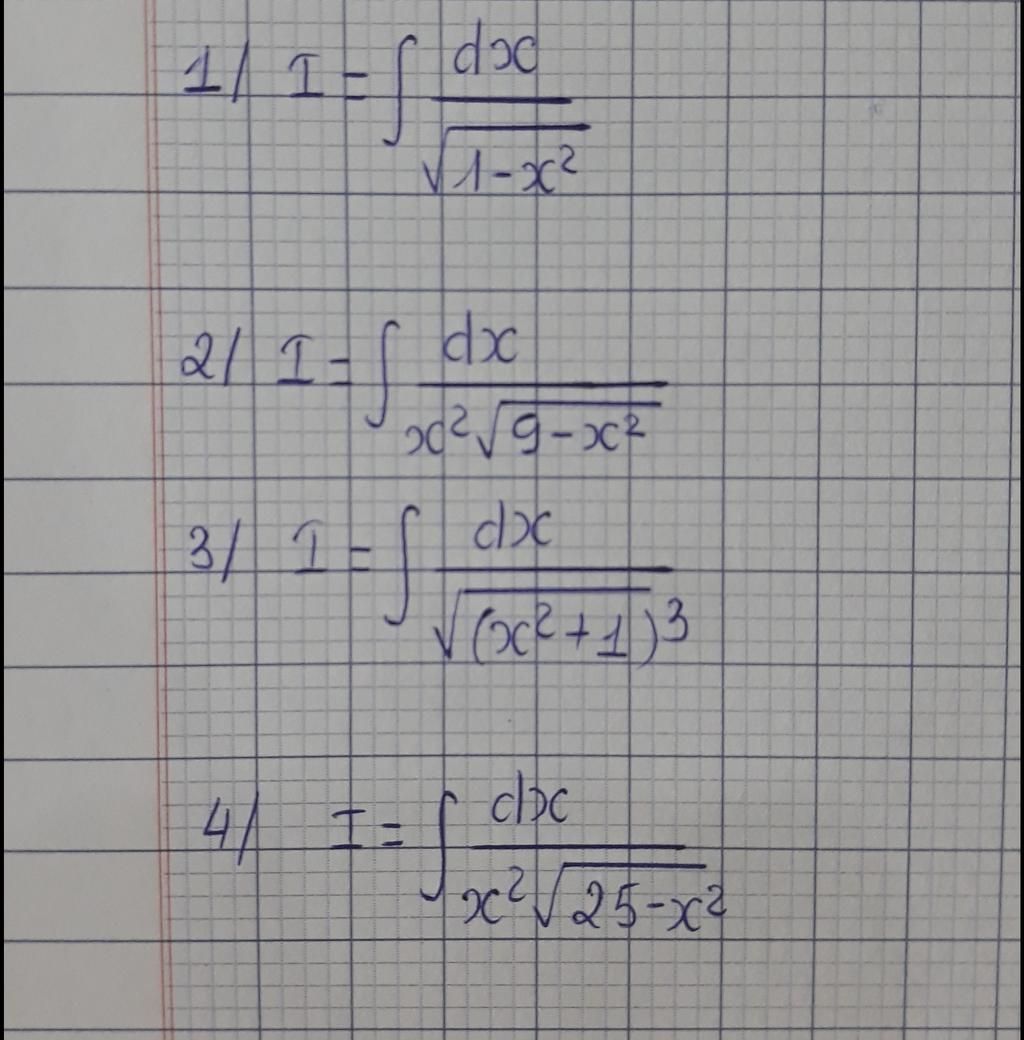 1/ I = ∫ dx / √(1-x²)
2/ I = ∫ dx / x²√(9-x²)
3/ I = ∫ dx / √((x²+1)³)
4/ I = ∫ dx / x²√(25-x²)